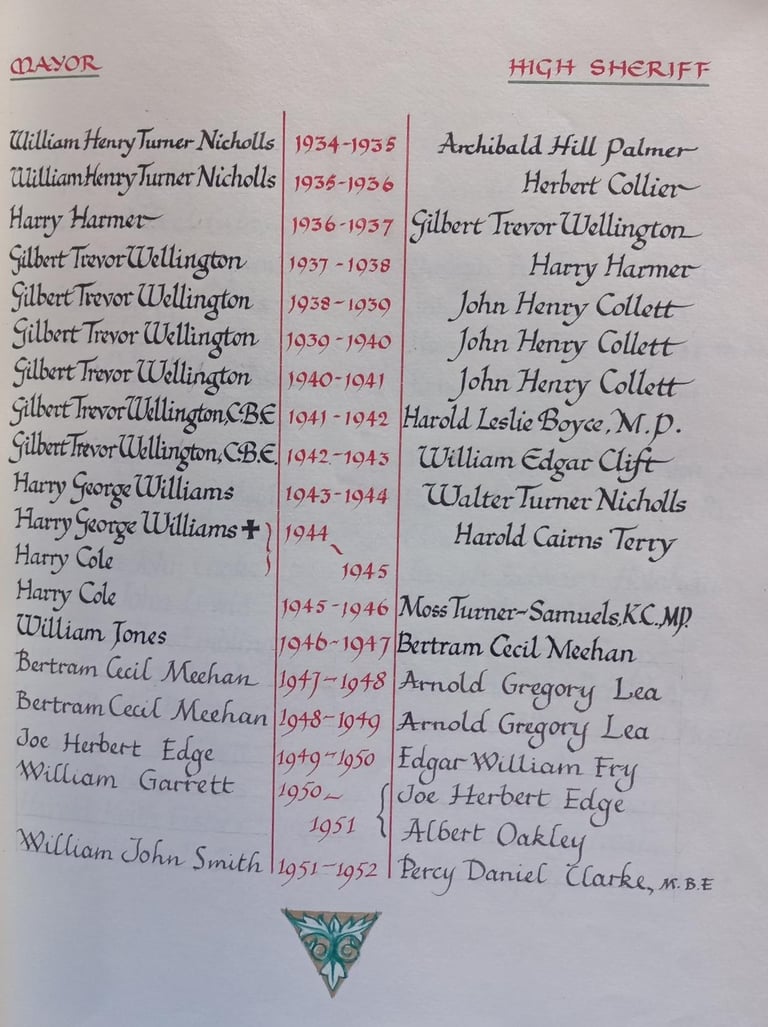 MAYOR HIGH SHERIFF
William Henry Turner Nicholls 1934-1935 Archibald Hill Palmer
William Henry Turner Nicholls 1935-1936 Herbert Collier
Harry Harmer 1936-1937 Gilbert Trevor Wellington
Gilbert Trevor Wellington 1937-1938 Harry Harmer
Gilbert Trevor Wellington 1938-1939 John Henry Collett
Gilbert Trevor Wellington 1939-1940 John Henry Collett
Gilbert Trevor Wellington 1940-1941 John Henry Collett
Gilbert Trevor Wellington, C.B.E 1941-1942 Harold Leslie Boyce, M.P.
Gilbert Trevor Wellington, C.B.E. 1942-1943 William Edgar Clift
Harry George Williams 1943-1944 Walter Turner Nicholls
Harry George Williams ✝ 1944 Harold Cairns Terry
Harry Cole 1945
Harry Cole 1945-1946 Moss Turner-Samuels, K.C., M.P.
William Jones 1946-1947 Bertram Cecil Meehan
Bertram Cecil Meehan 1947-1948 Arnold Gregory Lea
Bertram Cecil Meehan 1948-1949 Arnold Gregory Lea
Joe Herbert Edge 1949-1950 Edgar William Fry
William Garrett 1950- Joe Herbert Edge
1951 Albert Oakley
William John Smith 1951-1952 Percy Daniel Clarke, M.B.E